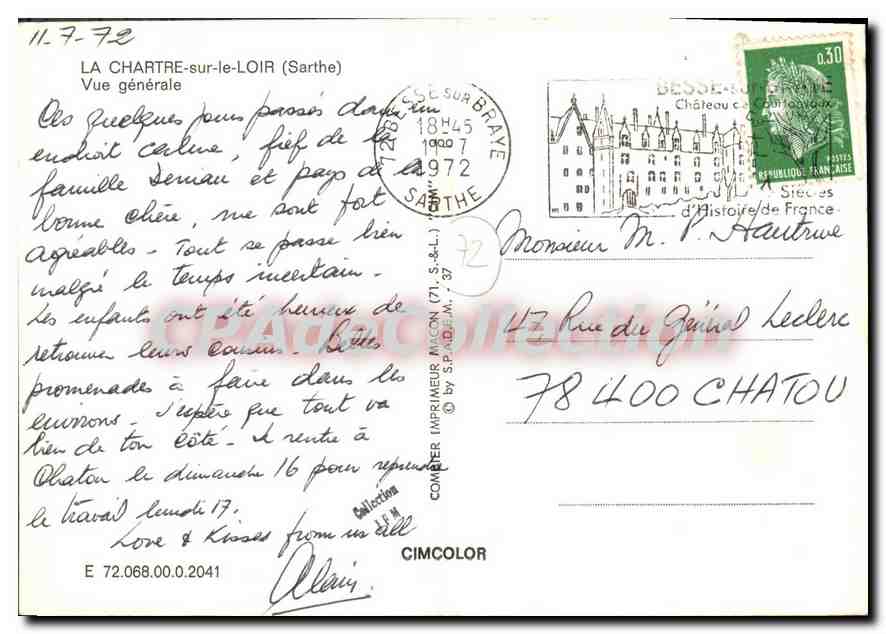 11-7-72
LA CHARTRE-sur-le-LOIR (Sarthe)
Vue générale
Ces quelques jours passés dans un
endroit calme, fief de la
famille et pays de la
bonne chère, me sont fort
agréables - Tout se passe bien
malgré le temps incertain -
Les enfants ont été heureux de
retrouver leurs cousins - Belles
promenades à faire dans les
environs - J'espère que tout va
bien de ton côté - Je rentre à
Chatou le dimanche 16 pour reprendre
le travail lundi 17.
Love & Kisses from us all
Alain.
E 72.068.00.0.2041
CIMCOLOR
Collection
J F M
COMBIER IMPRIMEUR MACON (71. S.-&-L.) "CIM"
© by S.P.A.D.E.M. - 37
72 BESSE SUR BRAYE
18H45
7
1972
SARTHE
72
BESSE-sur-BRAYE
Château de Courtanvaux
Siècles
d'Histoire de France
0,30
POSTES
REPUBLIQUE FRANÇAISE
Monsieur M. P. Hautrive
47 Rue du Général Leclerc
78400 CHATOU
CPAdeCollection